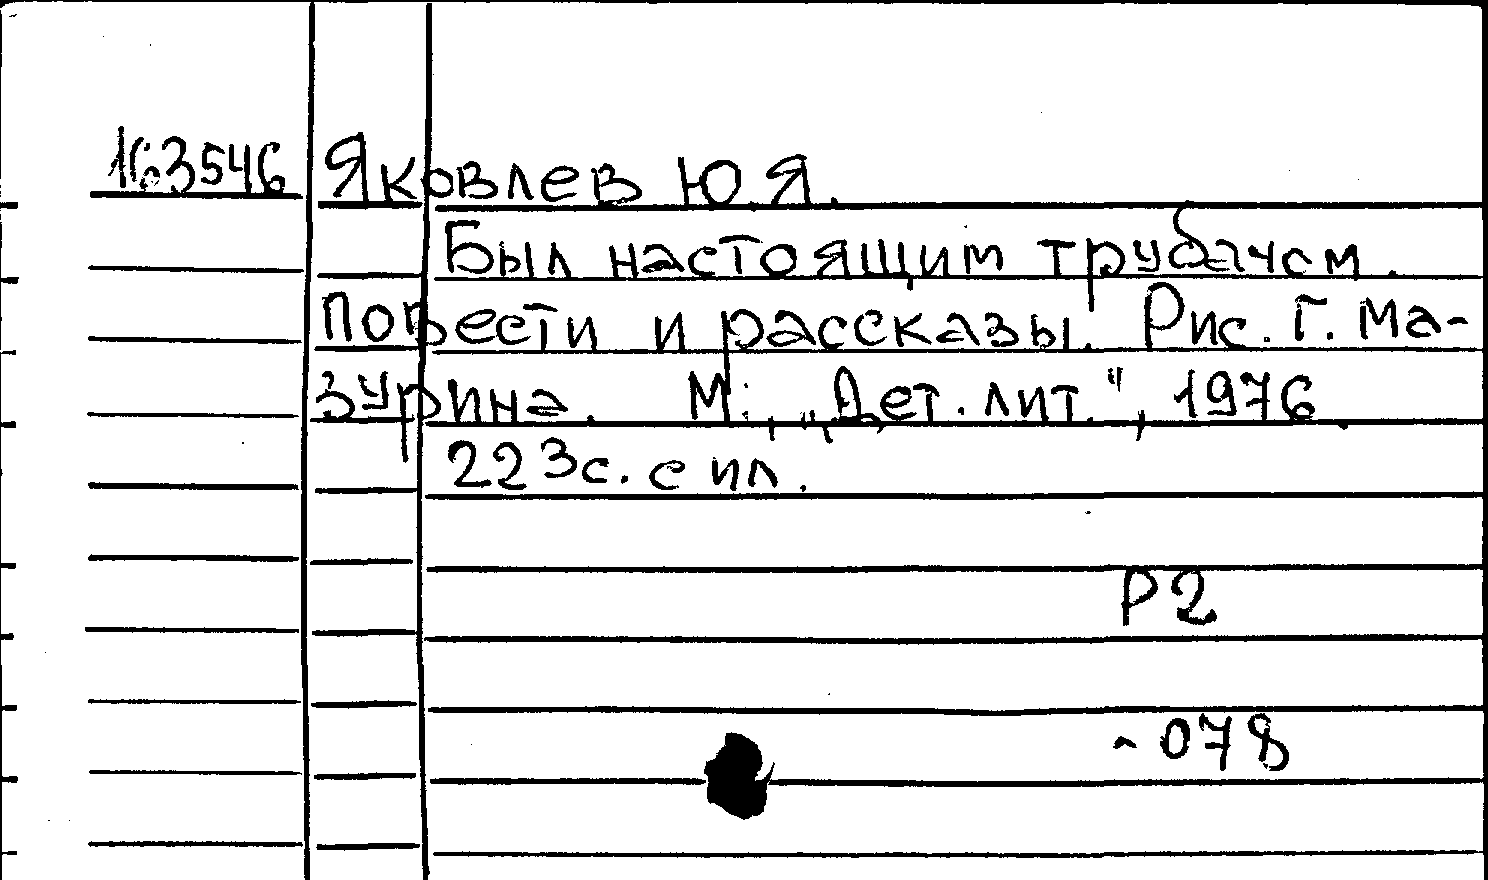 163546 Яковлев Ю.Я.
Был настоящим трубачом.
Повести и рассказы. Рис. Г. Ма-
зурина. М., „Дет. лит.", 1976
223с. с ил.
Р2
-078